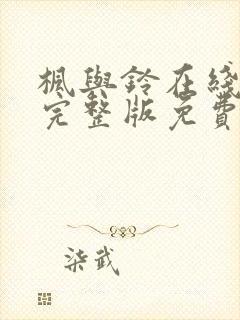 楓與鈴在綫
完整版免費
柒武